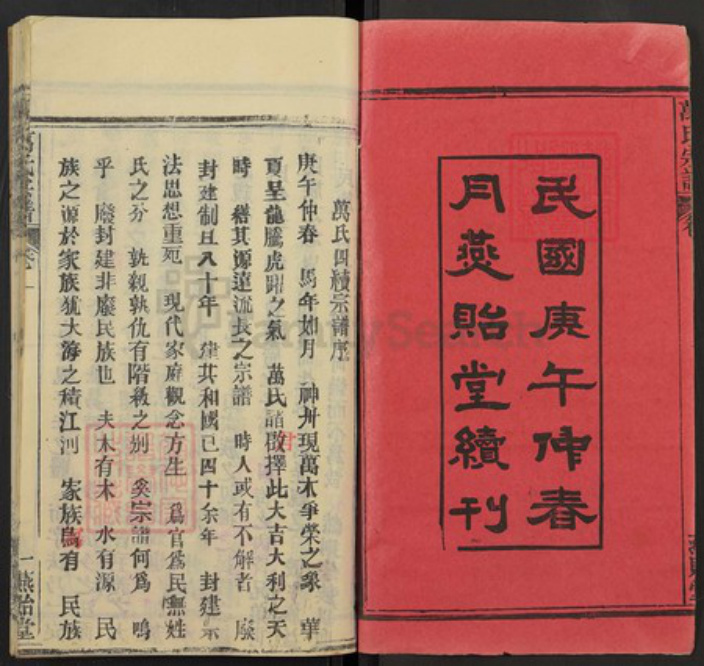 民國庚午仲春
月燕貽堂續刊
萬氏宗譜
萬氏四續宗譜序
庚午仲春 馬年如月 神州現萬木爭榮之象 華
夏呈龍騰虎躍之氣 萬氏諸啟擇此大吉大利之天
時 繕其源遠流長之宗譜 時人或有不解者 廢
封建制且八十年 建共和國已四十余年 封建宗
法思想重宛 現代家庭觀念方生 為官為民無姓
氏之分 孰親孰仇有階級之別 奚宗譜何為 嗚
乎 廢封建非廢民族也 夫木有木 水有源 民
族之源於家族犹大海之積江河 家族烏有 民族
萬氏宗譜
卷一
一
燕貽堂
FamilySearch